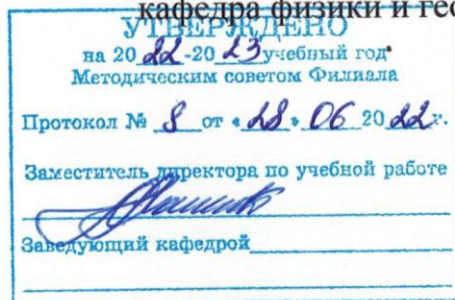 кафедра физики и гео
УТВЕРЖДЕНО
на 2022-2023 учебный год
Методическим советом Филиала
Протокол № 8 от «28» 06 2022 г.
Заместитель директора по учебной работе
Заведующий кафедрой